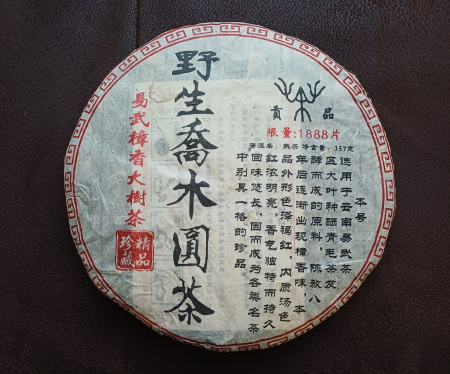 野生喬木圓茶
易武樟香大樹茶
精品
珍藏
贡品
限量:1888片
普洱茶:熟茶 净含量:357克
本号
选用于云南易武茶
区大叶种晒青毛茶发
酵而成的原料，陈放八
年后逐渐出现樟香味，本
品外形色泽褐红，内质汤色
红浓明亮，香气独特而持久
回味悠长，因而成为各类名茶
中别具一格的珍品。